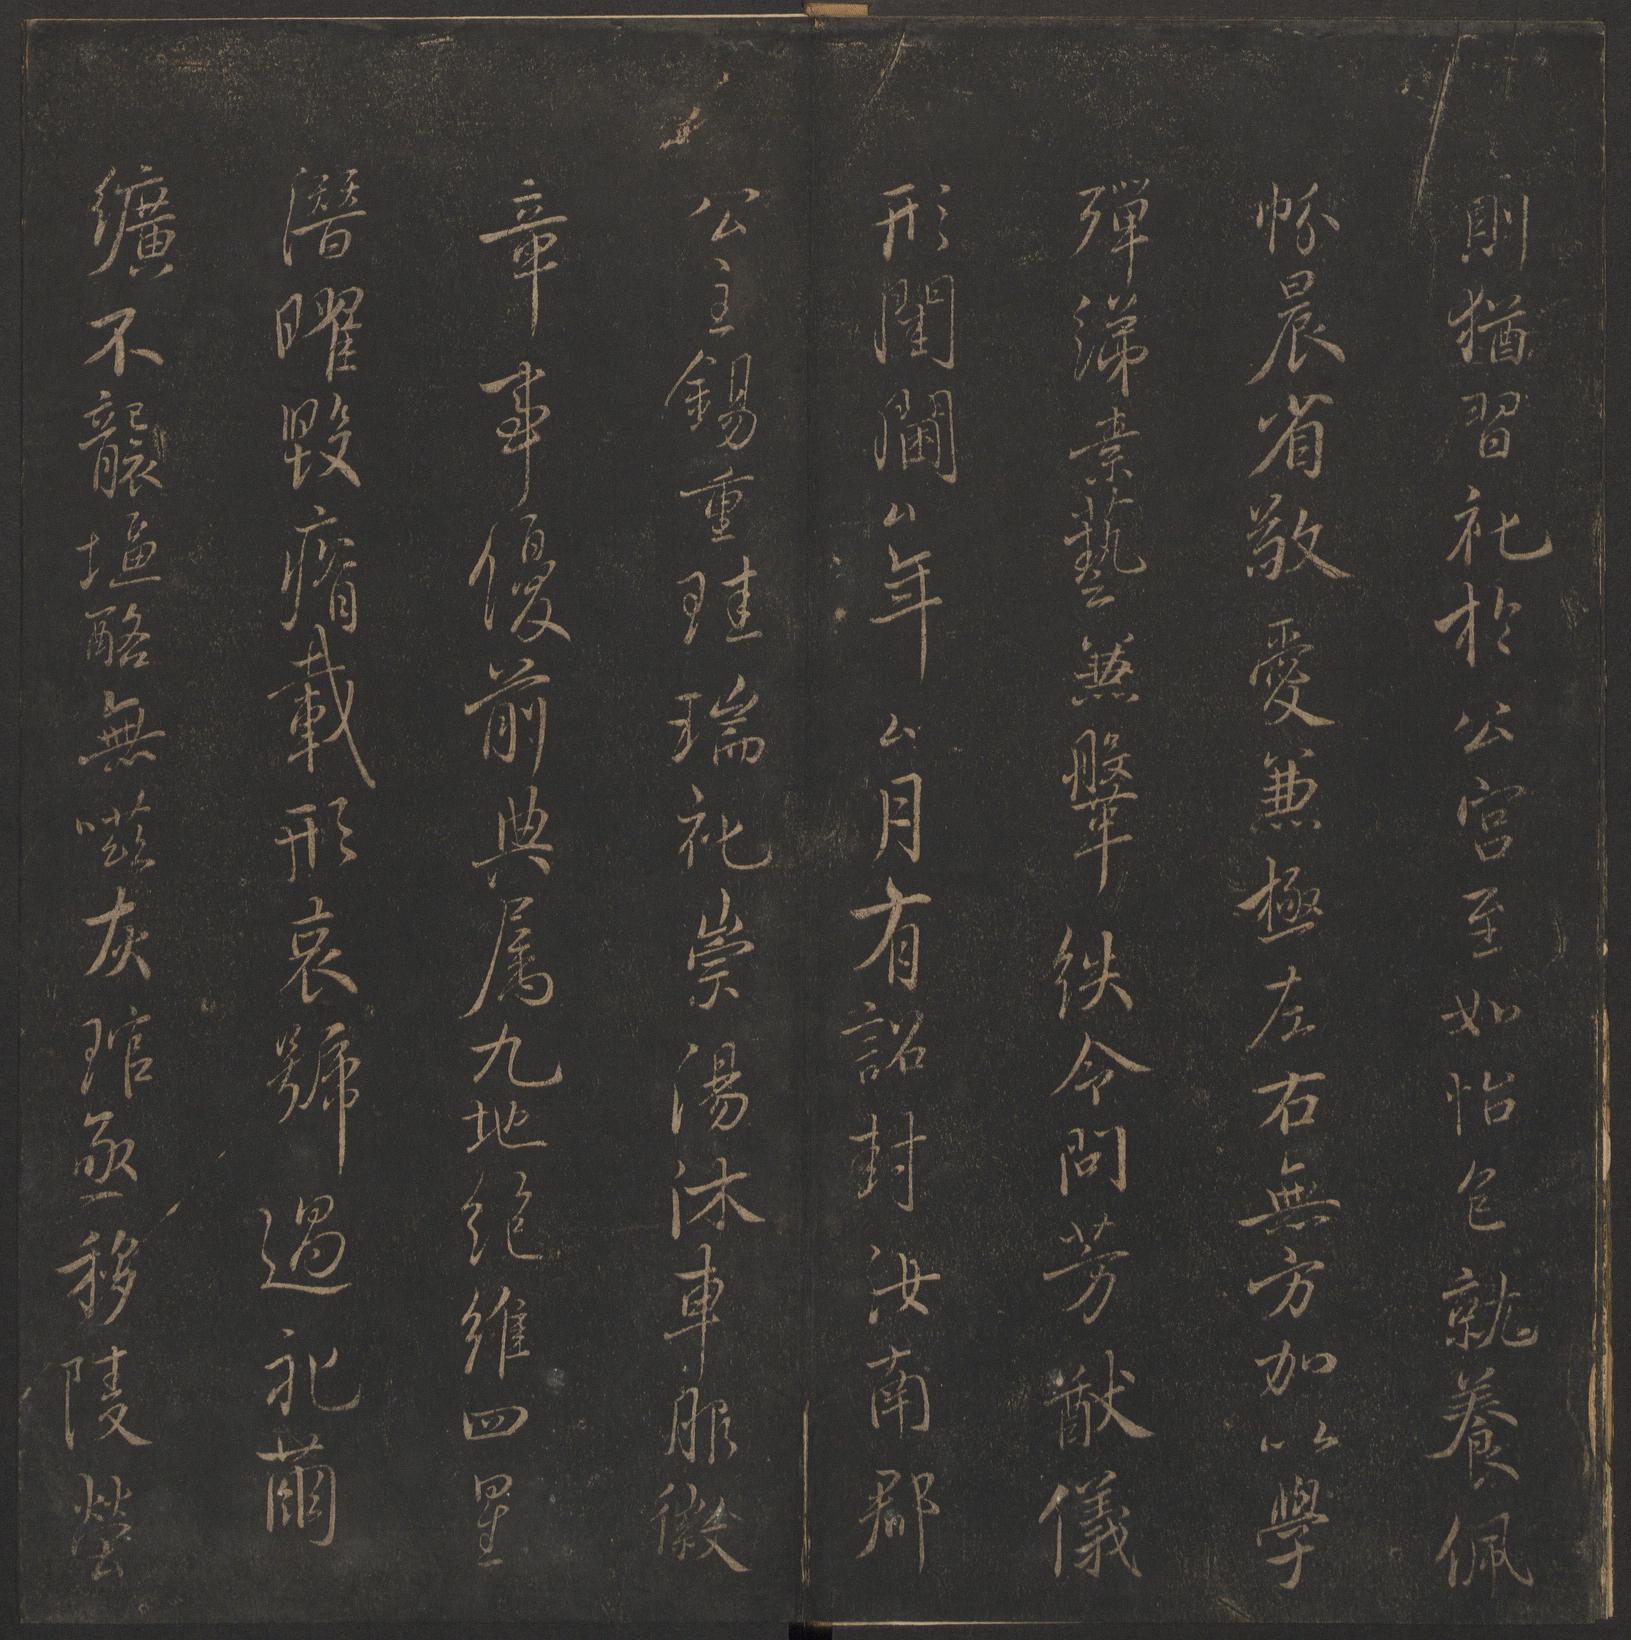 則猶習礼於公宮至如怡色就養佩
帉晨省敬愛兼極左右無方加以學
殫綈素藝兼鞶紩令問芳猷儀
形閨閫厶年厶月有詔封汝南郡
公主錫重珪瑞礼崇湯沐車服徽
章事優前典属九地絶維四星
潛曜毀瘠載形哀號過礼繭
纊不襲塩酪無嗞灰琯亟移陵塋